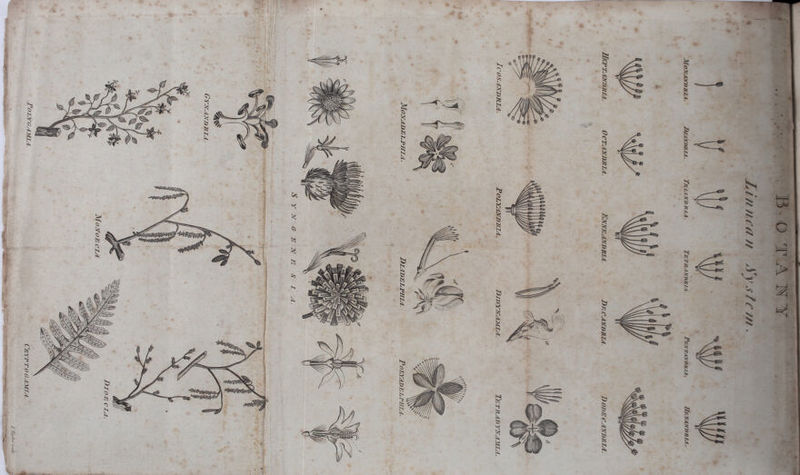 BOTANY
Linnean System.
MONANDRIA. DIANDRIA. TRIANDRIA. TETRANDRIA. PENTANDRIA. HEXANDRIA.
HEPTANDRIA. OCTANDRIA. ENNEANDRIA. DECANDRIA. DODECANDRIA.
ICOSANDRIA. POLYANDRIA. DIDYNAMIA. TETRADYNAMIA.
MONADELPHIA. DIADELPHIA. POLYADELPHIA.
SYNGENESIA.
GYNANDRIA. MONOECIA DIOECIA.
POLYGAMIA. CRYPTOGAMIA.